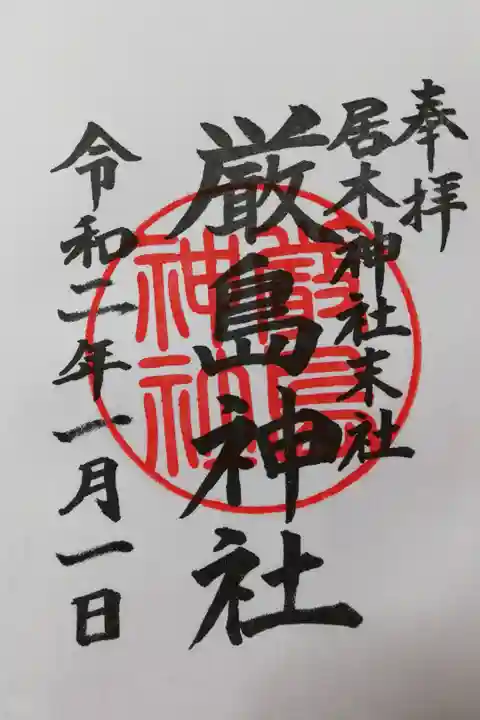 奉拝
居木神社末社
厳島神社
令和二年一月一日
厳島
神社